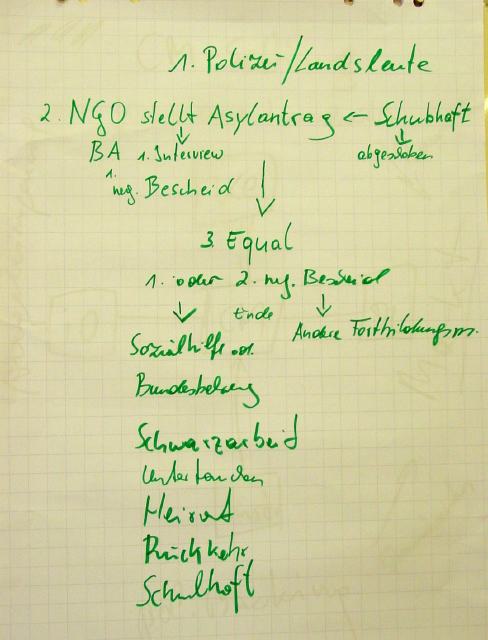 1. Polizei/Landsleute
2. NGO stellt Asylantrag ← Schubhaft
BA 1. Interview abgeschoben
1. neg. Bescheid
3. Equal
1. oder 2. neg. Bescheid
Ende
Sozialhilfe od. Andere Fortbildungsm.
Bundesbetreuung
Schwarzarbeit
Untertauchen
Heirat
Rückkehr
Schubhaft